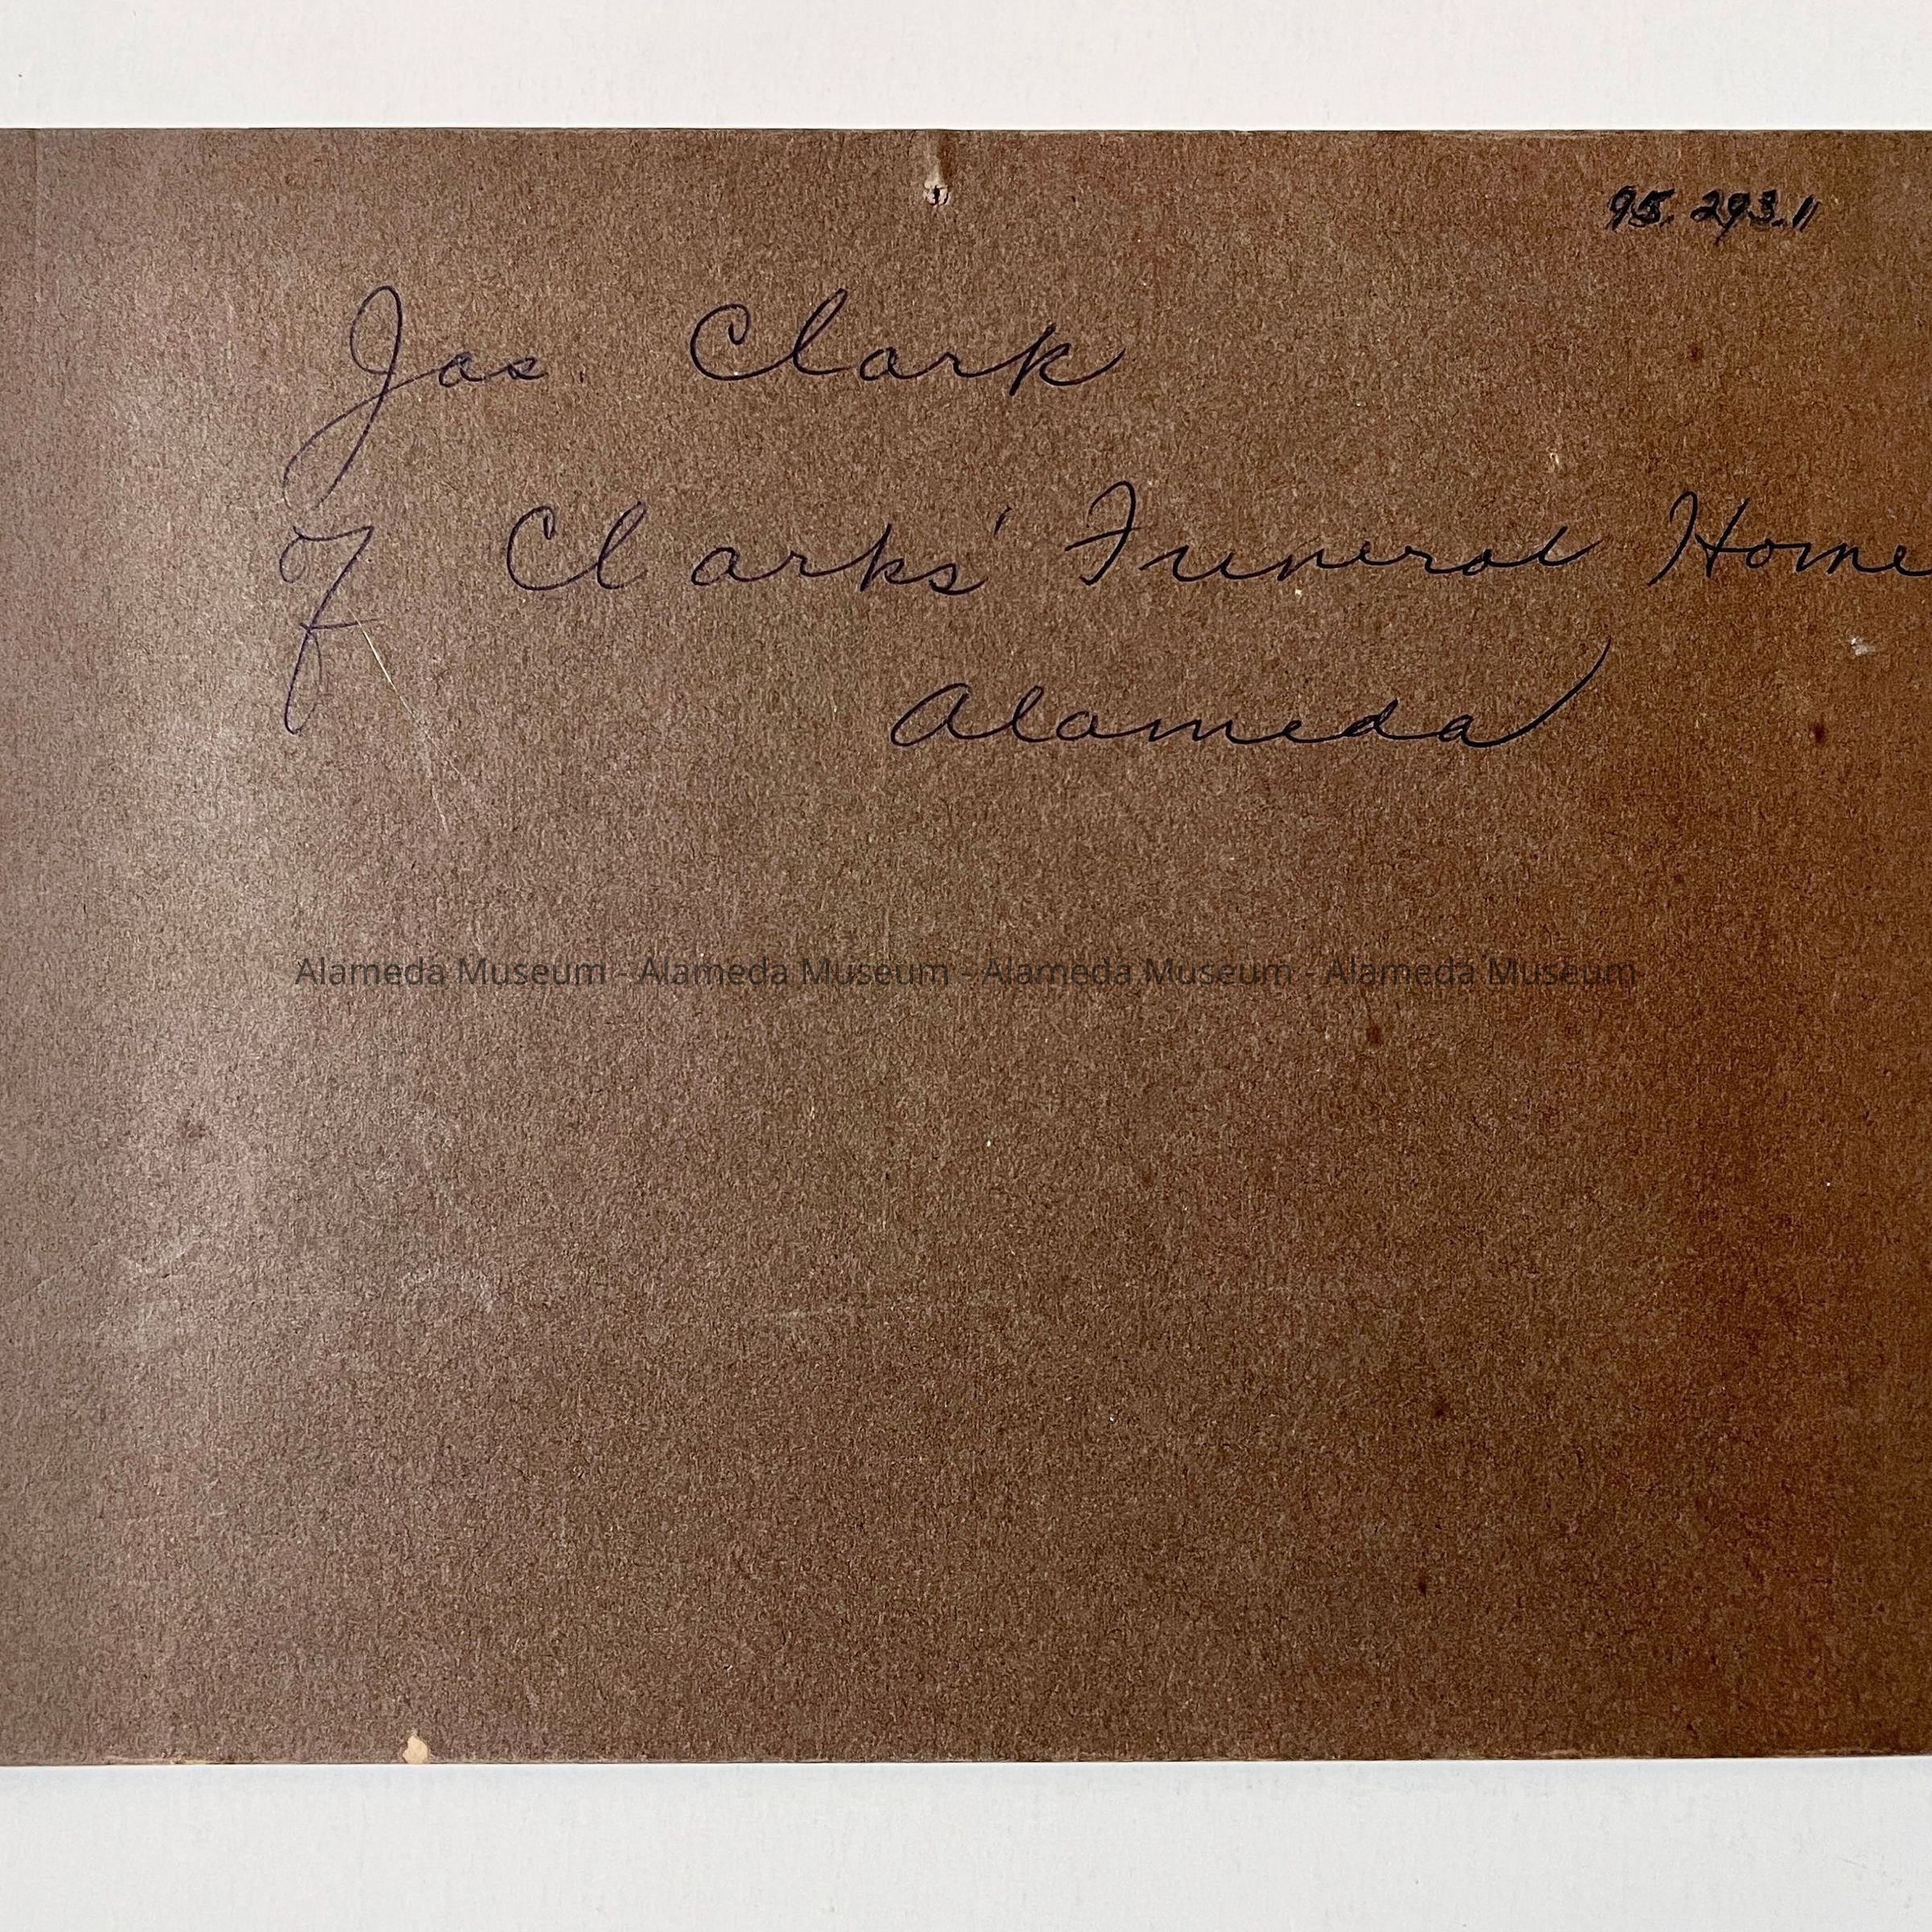 95.293.11
Jas Clark
of Clarks' Funeral Home
Alameda
Alameda Museum - Alameda Museum - Alameda Museum - Alameda Museum